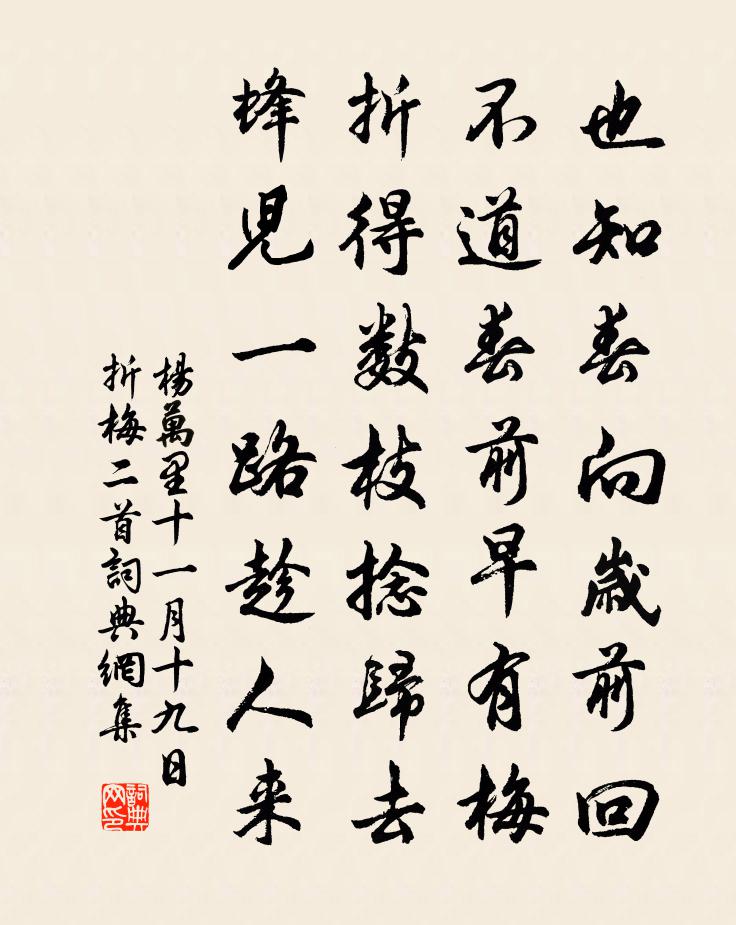 也知春向歳前回
不道春前早有梅
折得数枝捻歸去
蜂児一路趁人来
楊萬里十一月十九日
折梅二首詞典網集
詞典网印